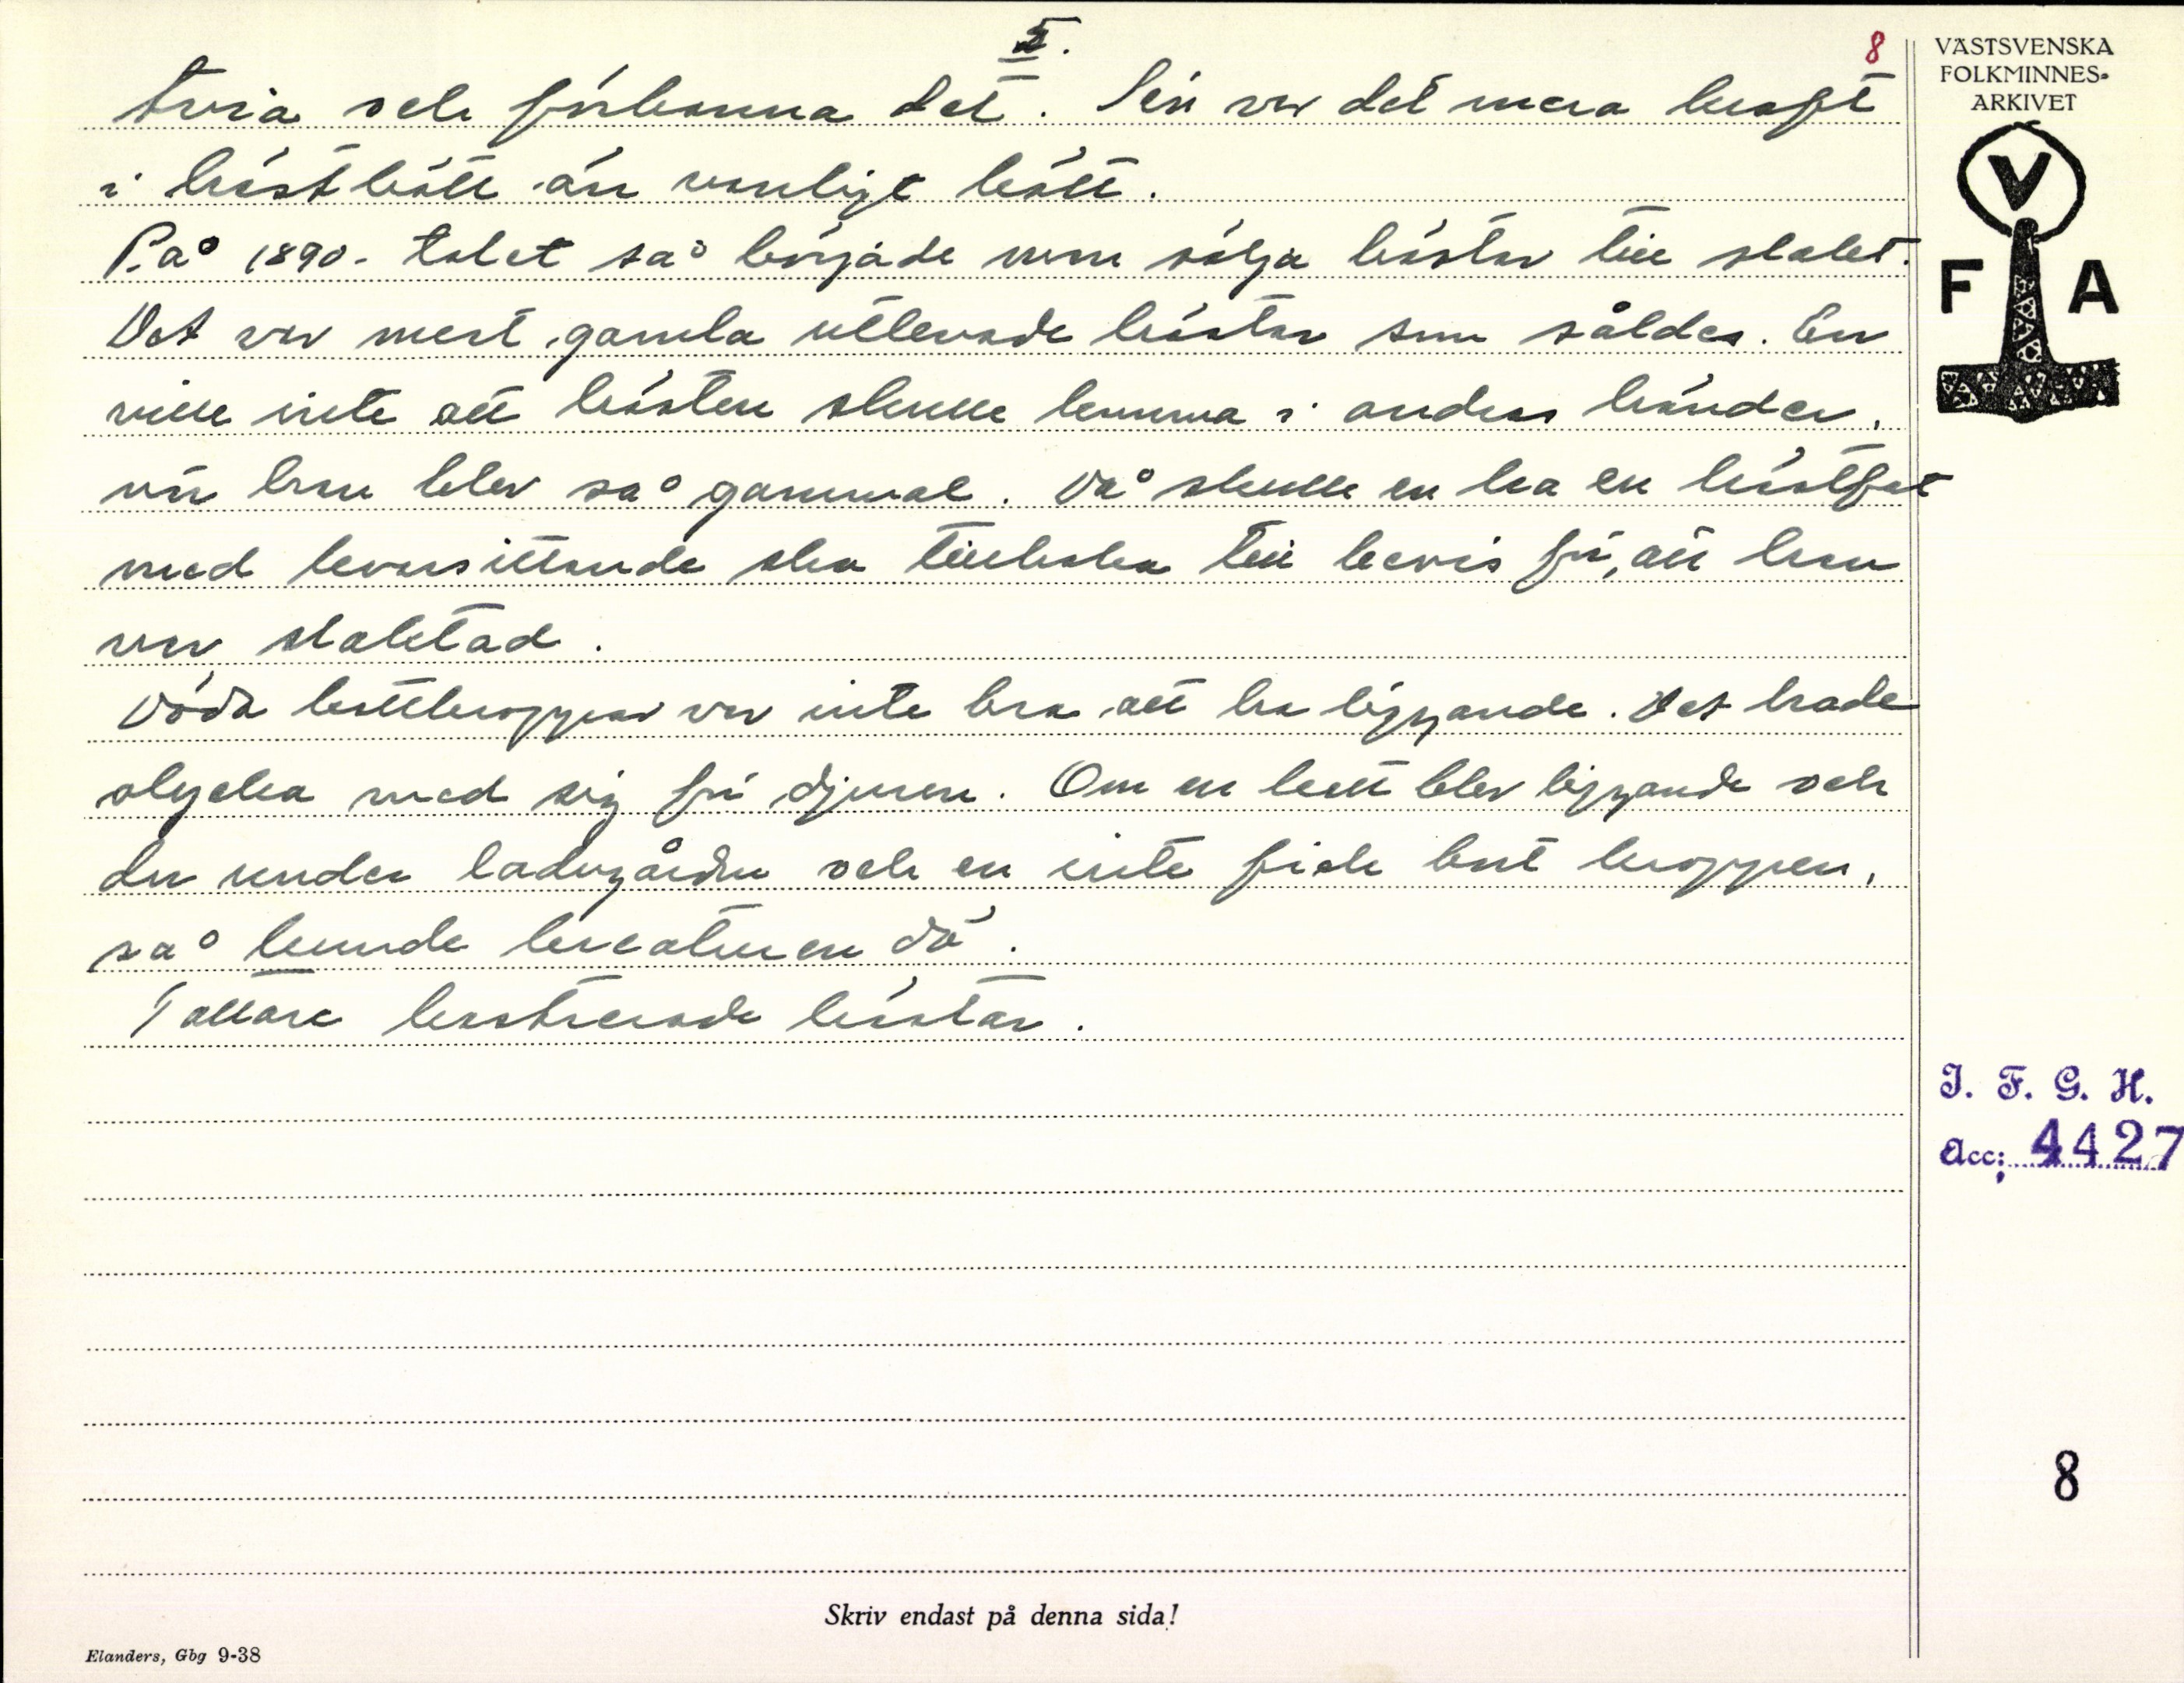 5.
8
tvia och förbanna det. Sen var det mera kraft
i hästkött än vanligt kött.
På 1890-talet så började man sälja hästar till slakt.
Det var mest gamla utlevade hästar som såldes. En
ville inte att hästen skulle komma i andras händer,
när han blev så gammal. Då skulle en ha en hästfot
med kvarsittande sko tillbaka till bevis för, att han
var slaktad.
Döda kattkroppar var inte bra att ha liggande. Det hade
olycka med sig för djuren. Om en katt blev liggande och
dö under ladugården och en inte fick bort kroppen,
så kunde kreaturen dö.
Tattare kastrerade hästar.
VÄSTSVENSKA
FOLKMINNES-
ARKIVET
V
F A
I. F. G. H.
Acc; 4427
8
Skriv endast på denna sida!
Elanders, Gbg 9-38